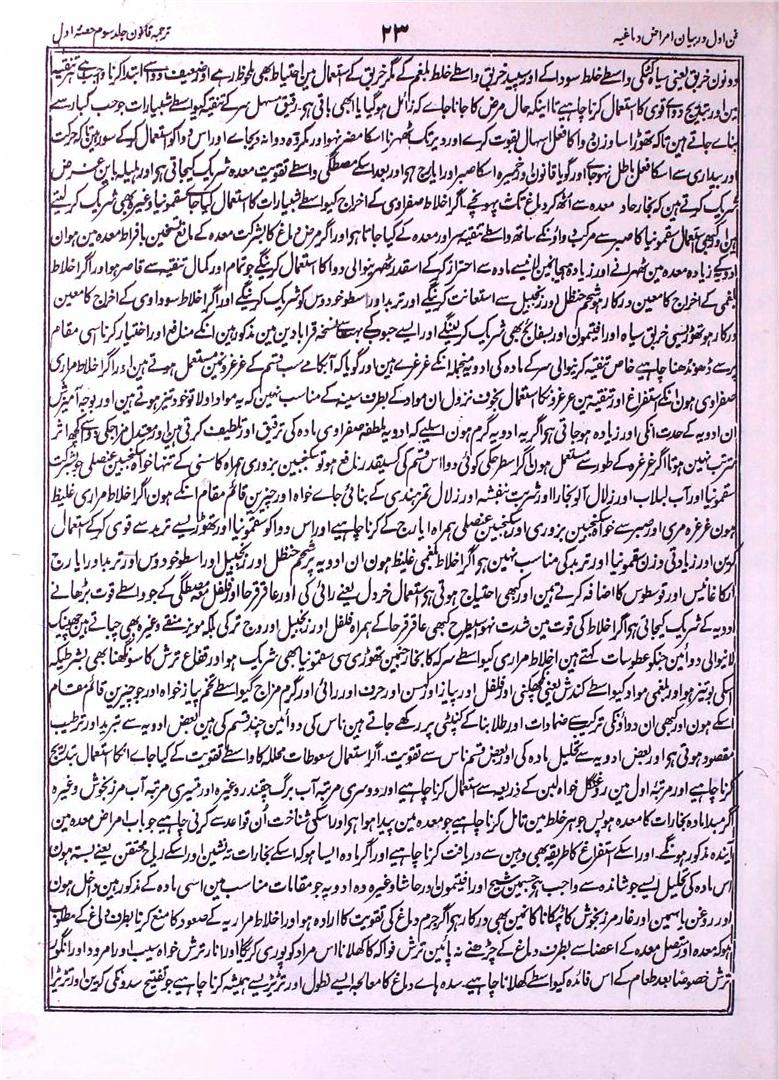 فن اول در بیان امراض دماغیہ ۲۳ ترجمہ قانون جلد سوم حصہ اول
دونون خربق یعنی سیاہ کٹکی واسطے خلط سودا کے اور سپید خربق واسطے خلط بلغم کے مگر خربق کے استعمال مین احتیاط بھی ملحوظ رہے اور ضعیف دوا سے ابتدا کرنا واجب ہے ہر تنقیہ
مین اور بتدریج دوا سے قوی کا استعمال کرنا چاہیے تا اینکہ حال مرض کا جانا جاے کہ زائل ہو گیا یا ابھی باقی ہو رفیق مسہل سر کے تنقیہ کیواسطے شبیارات جو حب کبار سے
بناے جاتے ہین تا کہ تھوڑا سا وزن دوا کا فعل اسہال بقوت کرے اور دیر تک ٹھہرنا اسکا مضر نہو اور مکررہ دوا نہ دیجاے اور اس دوا کو استعمال کر کے سو رہین تا کہ حرکت
اور بیداری سے اسکا فعل باطل نہو جاے اور گویا قانون و خمیرہ اسکا صبر اور ایارج ہو اور بعد اسکے مصطگی واسطے تقویت معدہ شریک کیجاتی ہو اور ہلیلہ باین غرض
شریک کرتے ہین کہ بخار حاد معدہ سے اٹھ کر دماغ تک نہ پہونچے اگر اخلاط صفراوی کے اخراج کیواسطے شبیارات کا استعمال کیا جاے سقمونیا وغیرہ کو بھی شریک کر لیتے
ہین اور کبھی استعمال سقمونیا کا صبر سے مرکب دواؤنکے ساتھ واسطے تنقیہ سر اور معدہ کے کیا جاتا ہو اور اگر مرض دماغ کا بشرکت معدہ کے مانع تسخین بافراط معدہ مین ہو ان
ادویہ کے زیادہ معدہ مین ٹھہرانے اور زیادہ ہیجان مین لانے مادہ سے احتراز کر کے اسقدر ٹھہرنیوالی دوا کا استعمال کرینگے جو تمام اور کمال تنقیہ سے قاصر ہو اور اگر اخلاط
بلغمی کے اخراج کا معین درکار ہو شحم حنظل اور زنجبیل سے استعانت کرینگے اور تربد اور اسطوخودوس کو شریک کرینگے اور اگر اخلاط سوداوی کے اخراج کا معین
درکار ہو تھوڑیسی خربق سیاہ اور افتیمون اور بسفائج بھی شریک کر لینگے اور ایسے حبوب کے بہت سے نسخہ قرابادین مین مذکور ہین انکے منافع اور اختیار کرنا اسی مقام
پر سے ڈھونڈھنا چاہیے خاص تنقیہ کرنیوالی سر کے مادہ کی ادویہ منجملہ انکے غرغرے ہین اور گویا کہ آبکامہ سب قسم کے غرغرونمین مستعمل ہوتے ہین اور اگر اخلاط مراری
صفراوی ہون انکے استفراغ اور تنقیہ مین غرغرہ کا استعمال بخوف نزول ان مواد کے بطرف سینہ کے مناسب نہین کہ یہ مواد اولا تو خود تیز ہوتے ہین اور بوجہ آمیزش
ان ادویہ کے حدت انکی اور زیادہ ہو جاتی ہو اگر یہ ادویہ گرم ہون اسلیے کہ ادویہ ملطفہ صفراوی مادہ کی ترقیق اور تلطیف کرتی ہین اور معتدل مزاجکی دوا سے کچھ اثر
مترتب نہین ہوتا اگر غرغرہ کے طور سے مستعمل ہون اگر اسطرحکی کوئی دوا اس قسم کی کسیقدر نافع ہو تو سکنجبین بزوری ہمراہ کاسنی کے تنہا خواہ سکنجبین عنصلی جو بشرکت
سقمونیا اور آب لبلاب اور زلال آلو بخارا اور شربت بنفشہ اور زلال تمر ہندی کے بنائی جاے خواہ اور چیزین قائم مقام انکے ہون اگر اخلاط مراری غلیظ
ہون غرغرہ مری اور صبر سے خواہ سکنجبین بزوری اور سکنجبین عنصلی ہمراہ ایارج کے کرنا چاہیے اور اس دوا کو سقمونیا اور تھوڑیسے تربد سے قوی کر کے استعمال
کرین اور زیادتی وزن سقمونیا اور تربد کی مناسب نہین ہو اگر اخلاط بلغمی غلیظ ہون ان ادویہ پر شحم حنظل اور زنجبیل اور اسطوخودوس اور تربد اور ایارج
ارکاغانیس اور قوسطوس کا اضافہ کرتے ہین اور کبھی احتیاج ہوتی ہو استعمال خردل یعنے رائی کی اور عاقرقرحا اور فلفل مصطگی کے جو واسطے قوت بڑھانے
ادویہ کے شریک کیجاتی ہو اگر اخلاط کی قوت مین شدت نہو اسیطرح کبھی عاقرقرحا کے ہمراہ فلفل اور زنجبیل اور وج ترکی بلکہ مویز منقے وغیرہ بھی چباتے ہین چھینک
لانیوالی دوائین جنکو عطوسات کہتے ہین اخلاط مراری کیواسطے سرکہ کا بخار جنمین تھوڑی سی سقمونیا بھی شریک ہو اور فقاع ترش کا سونگھنا بھی بشرطیکہ
اسکی بو تیز ہو اور بلغمی مواد کیواسطے کندش یعنی نکچھکنی اور فلفل اور پیاز اور لہسن اور حرف اور رائی اور گرم مزاج کیواسطے تخم پیاز خواہ اور جو چیزین قائم مقام
اسکے ہون اور کبھی ان دواؤنکی ترکیب سے ضمادات اور طلا بنا کے کنپٹی پر رکھے جاتے ہین ناس کی دوائین چند قسم کی ہین بعض ادویہ سے تبرید اور ترطیب
مقصود ہوتی ہو اور بعض ادویہ سے تحلیل مادہ کی اور بعض قسم ناس سے تقویت۔ اگر استعمال سعوطات محللہ کا واسطے تقویت کے کیا جاے انکا استعمال بتدریج
کرنا چاہیے اور مرتبہ اول مین روغن گل خواہ لبن کے ذریعہ سے استعمال کرنا چاہیے اور دوسری مرتبہ آب برگ چقندر وغیرہ اور تیسری مرتبہ آب مرزنجوش وغیرہ
اگر مبدا مادہ بخارات کا معدہ ہو پس جو ہر خلط مین تامل کرنا چاہیے جو معدہ مین پیدا ہوا ہو اور اسکی شناخت اُن قواعد سے کرنی چاہیے جو باب امراض معدہ مین
آیندہ مذکور ہونگے۔ اور اسکے استفراغ کا طریقہ بھی وہین سے دریافت کرنا چاہیے اور اگر مادہ ایسا ہو کہ اسکے بخارات تہ نشین اور اسکے ریاح محتقن یعنے بستہ ہون
اس مادہ کی تحلیل ایسے جوشاندہ سے واجب ہو جسمین شیح اور افتیمون اور حاشا وغیرہ وہ ادویہ جو مقامات مناسب مین اسی مادہ کے مذکور ہین داخل ہون
اور روغن یاسمین اور غار مرزنجوش کا ٹپکانا کانمین بھی درکار ہو اگر جرم دماغ کی تقویت کا ارادہ ہو اور اخلاط مراریہ کے صعود کا منع کرنا بطرف دماغ کے مطلوب
ہو کہ معدہ اور متصل معدہ کے اعضا سے بطرف دماغ کے چڑھنے نہ پائین ترش فواکہ کا کھلانا اس مراد کو پوری کریگا اور انار ترش خواہ سیب اور امرود اور انگور
ترش خصوصاً بعد طعام کے اس فائدہ کیواسطے کھلانا چاہیے۔ سدہ ہاے دماغ کا معالجہ ایسے نطول اور تریڑے سے ہمیشہ کرنا چاہیے جو تفتیح سدونکی کرین اور تریڑا